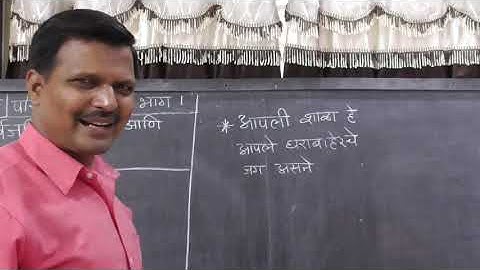 परि भाग 1
आणि
* आपली शाळा हे
आपले घराबाहेरचे
जग असते